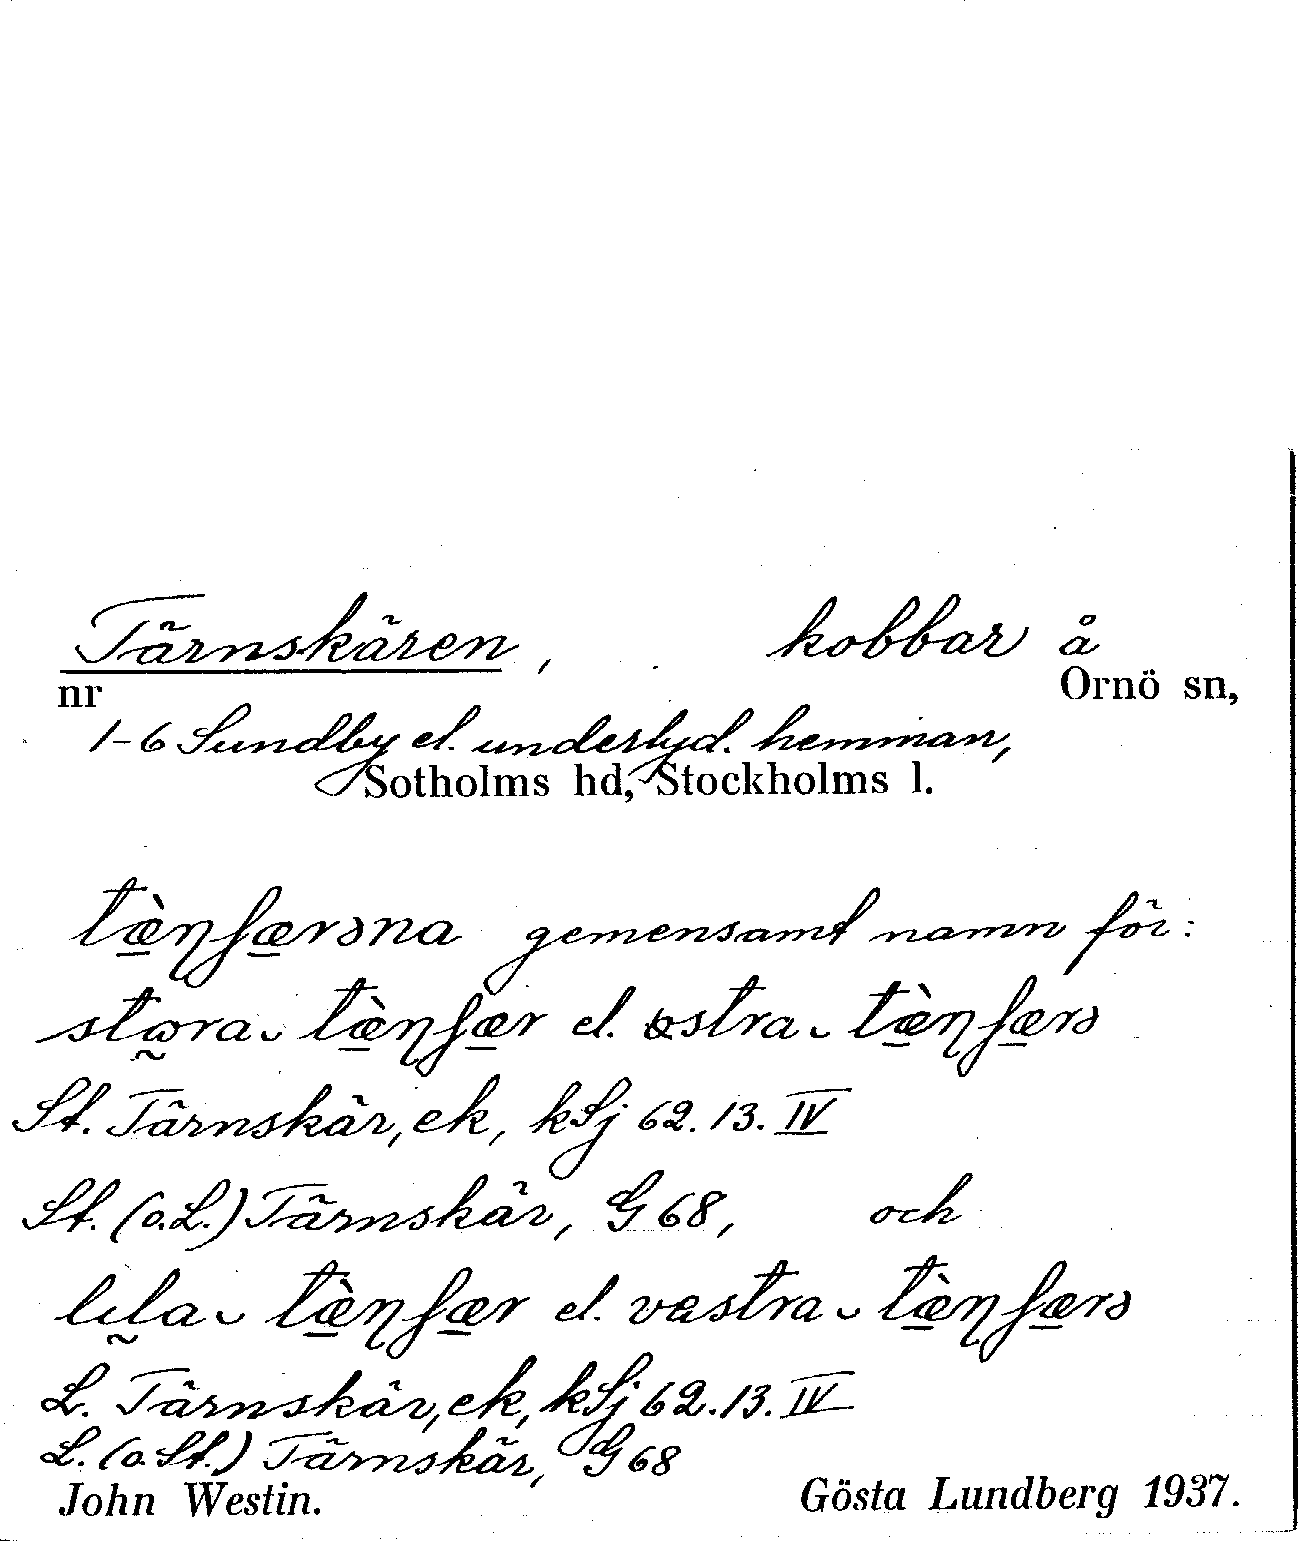 Tärnskären, kobbar å
nr Ornö sn,
1-6 Sundby el. underlyd. hemman,
Sotholms hd, Stockholms l.
gemensamt namn för:
el.
St. Tärnskär, ek, kSj 62.13.IV
St. (o. L.) Tärnskär, G 68, och
el.
L. Tärnskär, ek, kSj 62.13.IV
L. (o. St.) Tärnskär, G 68
John Westin. Gösta Lundberg 1937.